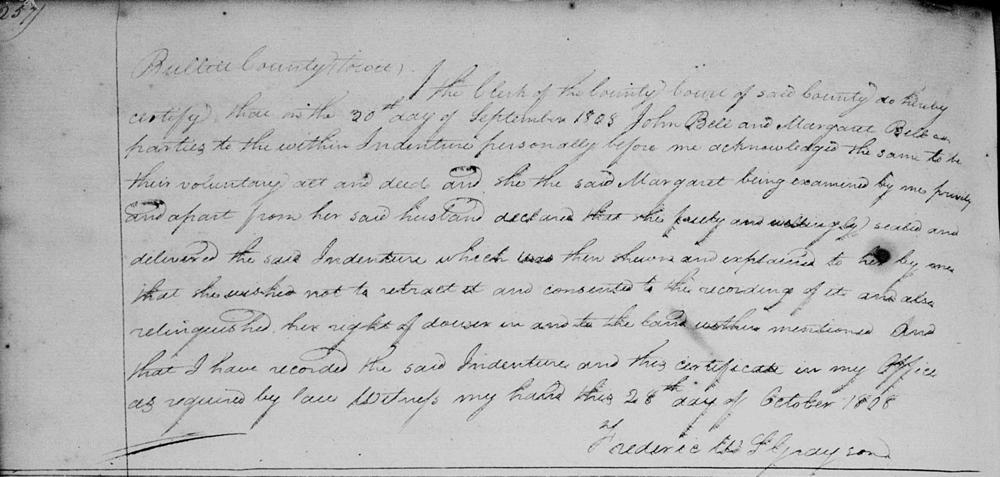 257
Bullitt County towit,
I the Clerk of the County Court of said County do hereby
certify that on the 20th day of September 1808 John Bell and Margaret Bell as
parties to the within Indenture personally before me acknowledged the same to be
their voluntary act and deed and she the said Margaret being examined by me privily
and apart from her said husband declared that she freely and willingly sealed and
delivered the said Indenture which was then shewn and explained to her by me
that she wished not to retract it and consented to the recording of it and also
relinquished her right of dower in and to the land within mentioned And
that I have recorded the said Indenture and this certificate in my Office
as required by law Witness my hand this 28th day of October 1808
Frederic W S Grayson